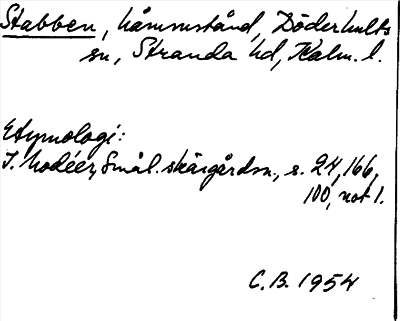 Stabben, hammstånd, Döderhults
sn, Stranda hd, Kalm. l.
Etymologi:
I. Modéer, Smål. skärgårdsn., s. 24, 166,
100, not 1.
C.B. 1954